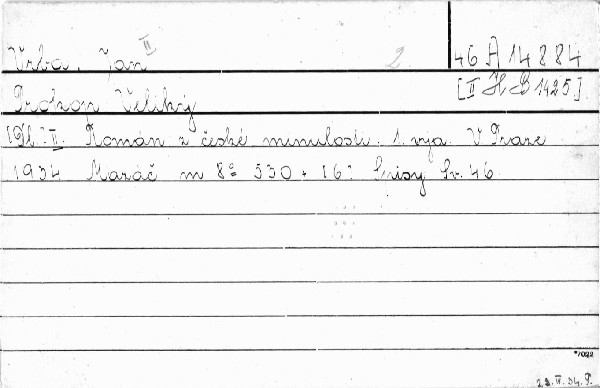 Vrba, Jan II 2 46 A 14884
Prokop Veliký [II H B 1425]
[Dl.] II. Román z české minulosti. 1. vyd. V Praze
1934 Mazáč m 8° 530 + 16] Spisy Sv. 46.
*/022
23. II. 34. P.